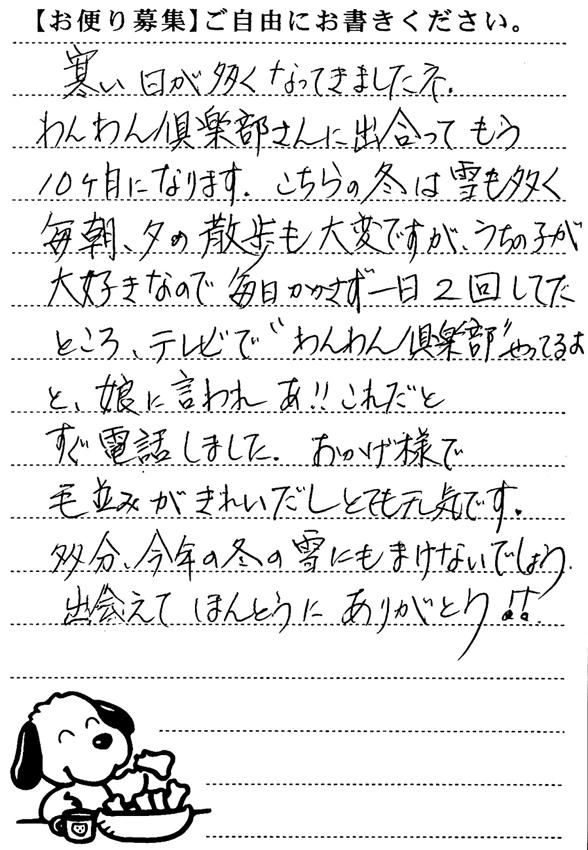 【お便り募集】ご自由にお書きください。
寒い日が多くなってきましたネ.
わんわん倶楽部さんに出合ってもう
10ヶ月になります. こちらの冬は雪も多く
毎朝、夕の散歩も大変ですが、うちの子が
大好きなので毎日かかさず一日2回してた
ところ、テレビで"わんわん倶楽部"やってるよ
と、娘に言われ あ!! これだと
すぐ電話しました. おかげ様で
毛並みがきれいだしとても元気です.
多分、今年の冬の雪にもまけないでしょう.
出会えて ほんとうに ありがとう!!